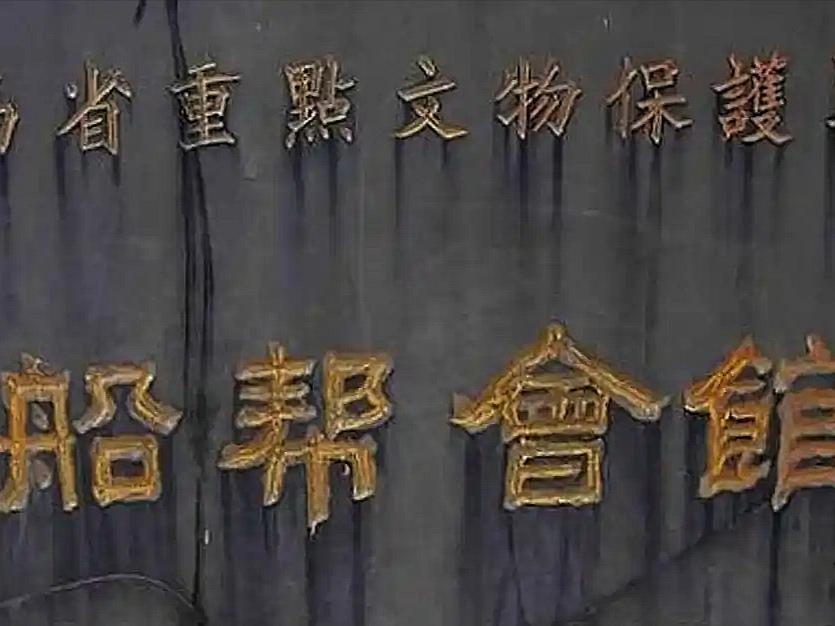 省重點文物保護
船帮會館